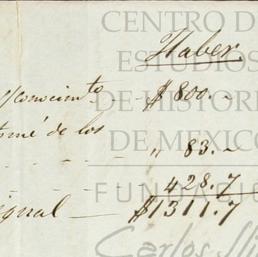 CENTRO DE
ESTUDIOS
DE HISTORIA
DE MEXICO
FUNDACIÓN
Carlos Sli
Haber.
conocimto. $800.-
tomé de los
" 83.-
428.7
igual — $1311.7